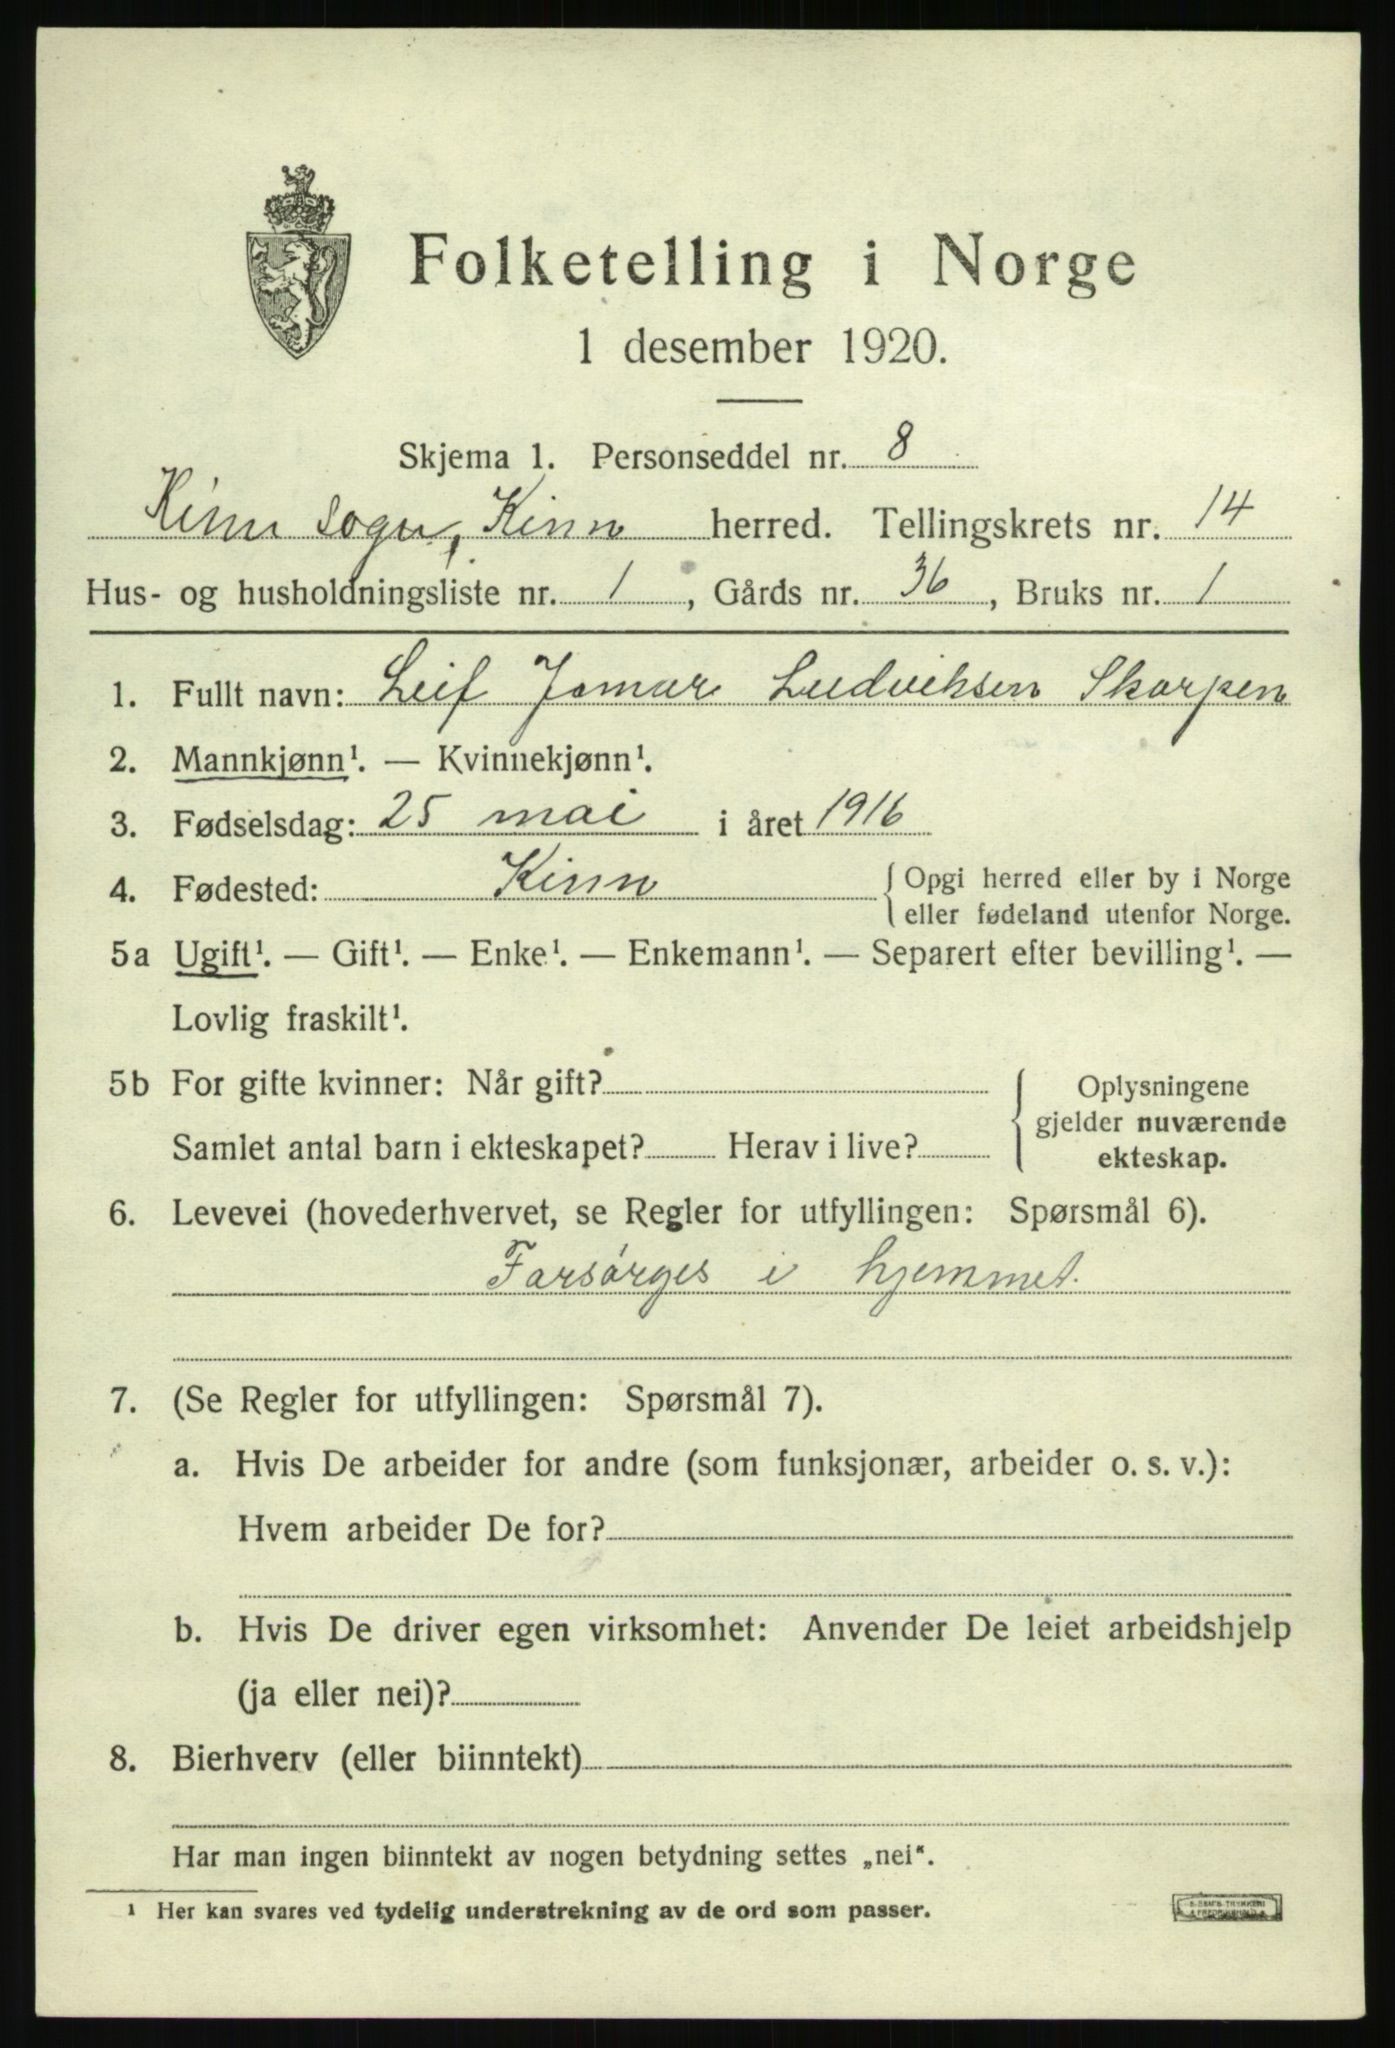 Folketelling i Norge
1 desember 1920.
Skjema 1. Personseddel nr. 8
Kinn sogn, Kinn herred. Tellingskrets nr. 14
Hus- og husholdningsliste nr. 1, Gårds nr. 36, Bruks nr. 1
1. Fullt navn: Leif Jomar Ludviksen Skorpen
2. Mannkjønn¹. — Kvinnekjønn¹.
3. Fødselsdag: 25 mai i året 1916
4. Fødested: Kinn { Opgi herred eller by i Norge
eller fødeland utenfor Norge.
5a Ugift¹. — Gift¹. — Enke¹. — Enkemann¹. — Separert efter bevilling¹. —
Lovlig fraskilt¹.
5b For gifte kvinner: Når gift?
Samlet antal barn i ekteskapet? Herav i live?
Oplysningene
gjelder nuværende
ekteskap.
6. Levevei (hovederhvervet, se Regler for utfyllingen: Spørsmål 6).
Forsørges i hjemmet.
7. (Se Regler for utfyllingen: Spørsmål 7).
a. Hvis De arbeider for andre (som funksjonær, arbeider o. s. v.):
Hvem arbeider De for?
b. Hvis De driver egen virksomhet: Anvender De leiet arbeidshjelp
(ja eller nei)?
8. Bierhverv (eller biinntekt)
Har man ingen biinntekt av nogen betydning settes „nei“.
¹ Her kan svares ved tydelig understrekning av de ord som passer.